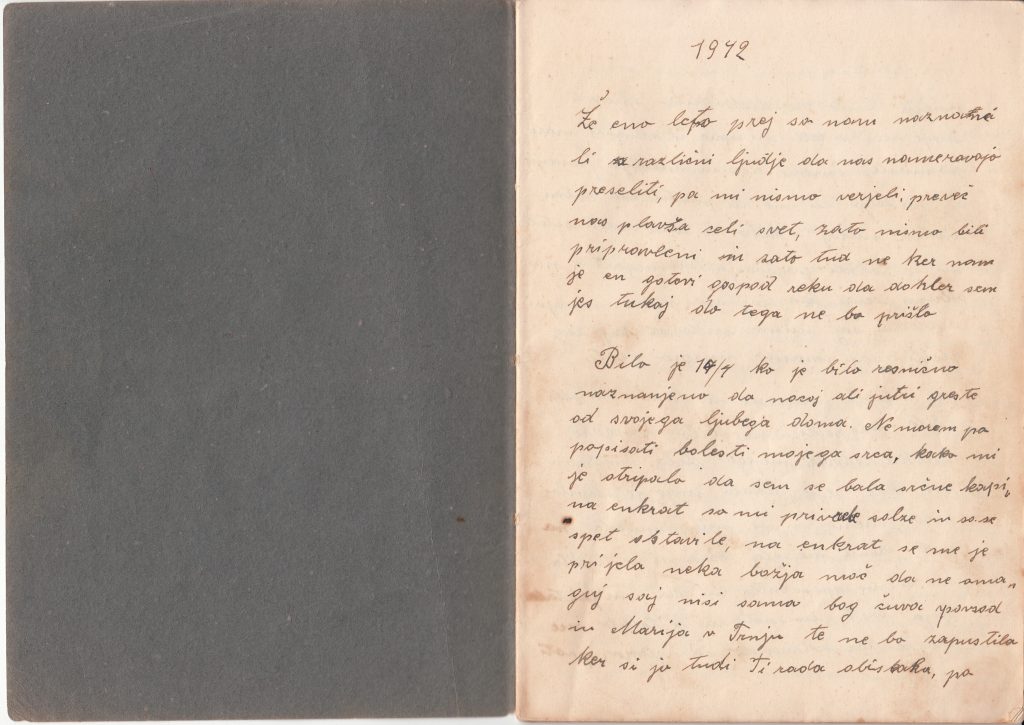 1942
Že eno leto prej so nam naznani
li različni ljudje da nas nameravajo
preseliti, pa mi nismo verjeli, preveč
nas plavša celi svet, zato nismo bili
pripravleni in zato tud ne ker nam
je en gotovi gospod reku da dokler sem
jes tukaj do tega ne bo prišlo
Bilo je 14/4 ko je bilo resnično
naznanjeno da nocoj ali jutri greste
od svojega ljubega doma. Ne morem pa
popisati bolesti mojega srca, kako mi
je utripalo da sem se bala srčne kapi,
na enkrat so mi privrele solze in so se
spet obstavile, na enkrat se me je
prijela neka božja moč da ne oma„
guj saj nisi sama bog čuva povsod
in Marija v Trnju te ne bo zapustila
ker si jo tudi Ti rada obiskala, pa